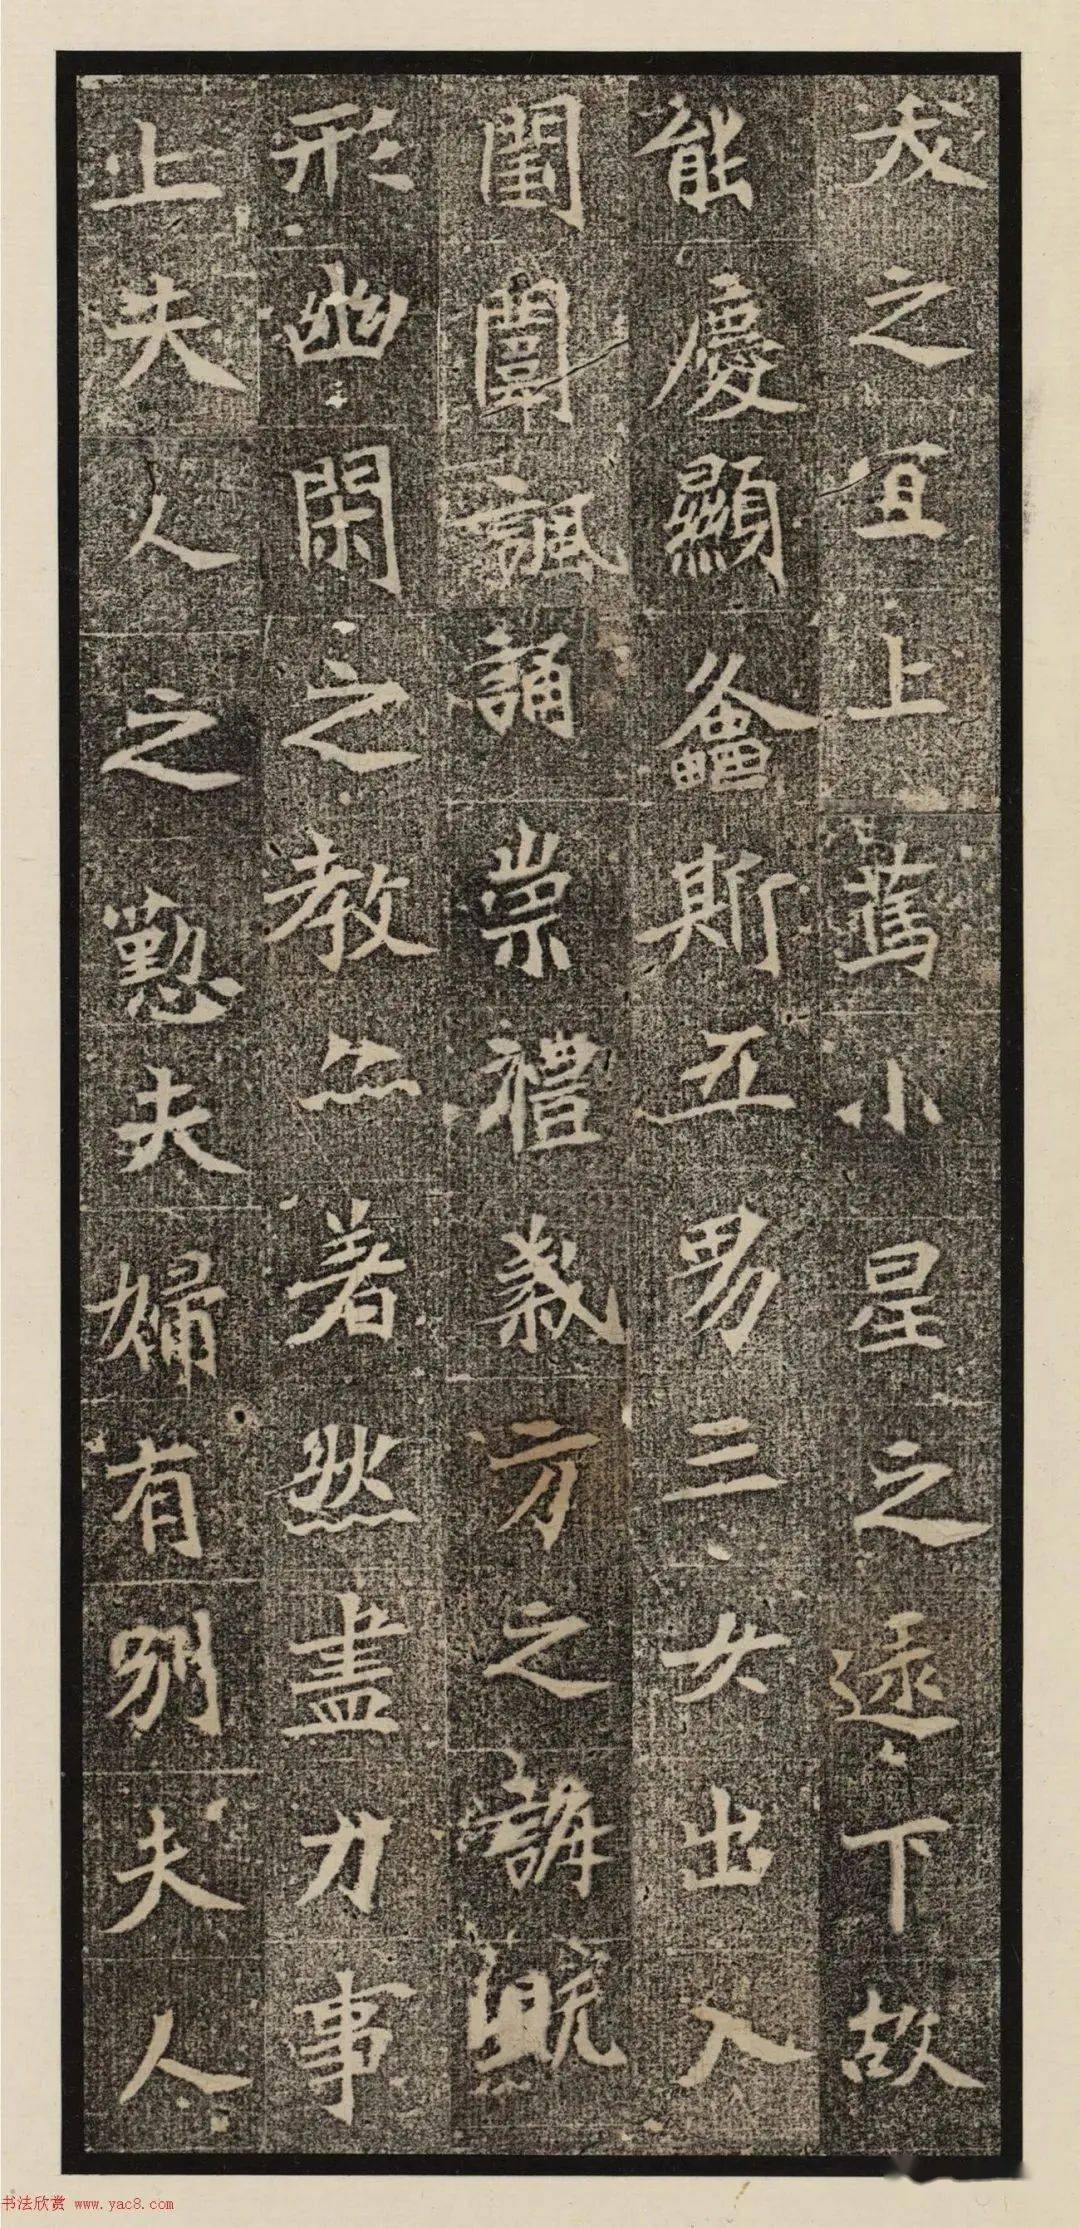 之宜上蔦小星之逮下故
能慶顯螽斯五男三女出入
閨闈諷誦崇禮義方之講既
形幽閑之教亦著然盡力事
上夫人之懃夫婦有別夫人
书法欣赏 www.yac8.com